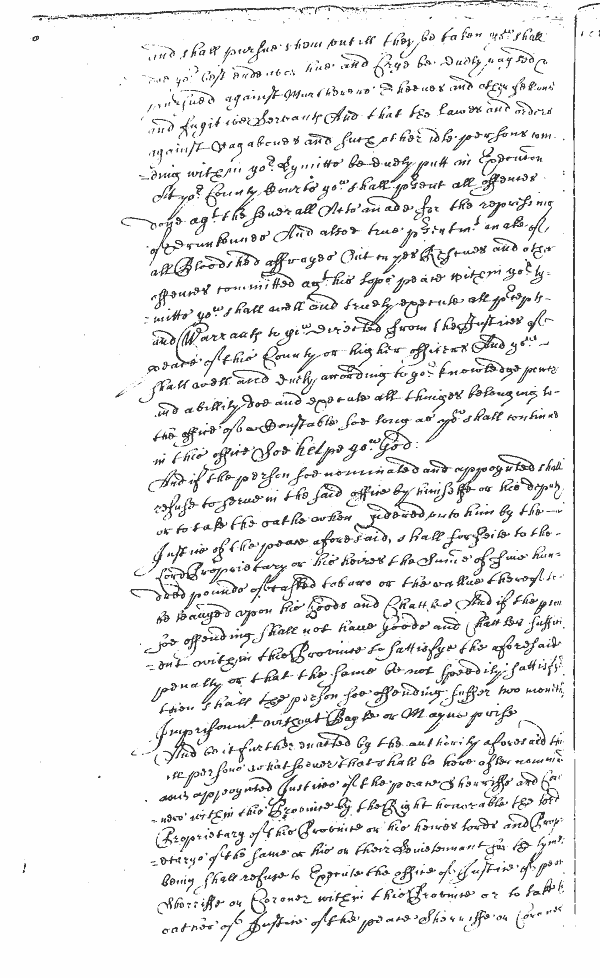 and shall pursue them untill they be taken yow shall
doe yor best endeavor hue and Crye be duely raysed &
pursued against Murtherers Theeves and other fellons
and fugitive Servants And that the Lawes and orders
against Vagabones and such other idle persons com-
=eing within yor Lymitts be duely putt in Execucon
At yor County Courts yow shall present all offences
done agt the severall Acts made for the repressing
of drunkennes And alsoe true presentmt make of
all Bloodshed affrayes Outcryes Rescues and other
offences committed agt his Lopps peace within yor ly-
=mitts yow shall well and truely execute all precepts
and Warrants to yow directed from the Justices of
peace of this County or higher officers And yow
shall well and duely according to yor knowledge power
and abillity doe and execute all thinges belonging to
the office of a Constable soe long as yow shall continue
in this office Soe helpe yow God.
And if the person soe nominated and appoynted shall
refuse to serve in the said office by himselfe or his deputy
or to take the oathe when tendered unto him by the
Justice of the peace aforesaid, shall forfeite to the
Lord Proprietary or his heires the Sume of five hun-
dred pounds of casked tobacco or the vallue thereof to
be leavyed upon his Goods and Chattles And if the person
soe offending shall not have Goods and Chattles suffici-
=ent within this Province to sattisfye the aforesaid
penalty or that the same be not speedily sattisfyed
then shall the person soe offending suffer two months
Imprisonmt without Bayle or Mayne prise
And be it further enacted by the authority aforesaid that
all persons whatsoever that shall be here after nominated
and appoynted Justices of the peace Sherriffe and Coro-
ners within this Province by the Right honorable the Lord
Proprietary of this Province or his heires Lords and Propri-
=etarys of the same or his or their Lieutennant for the tyme
being shall refuse to Execute the office of Justice of peace
Sherriffe or Coroner within this Province or to take the
oathes of Justice of the peace Sherriffe or Coroner